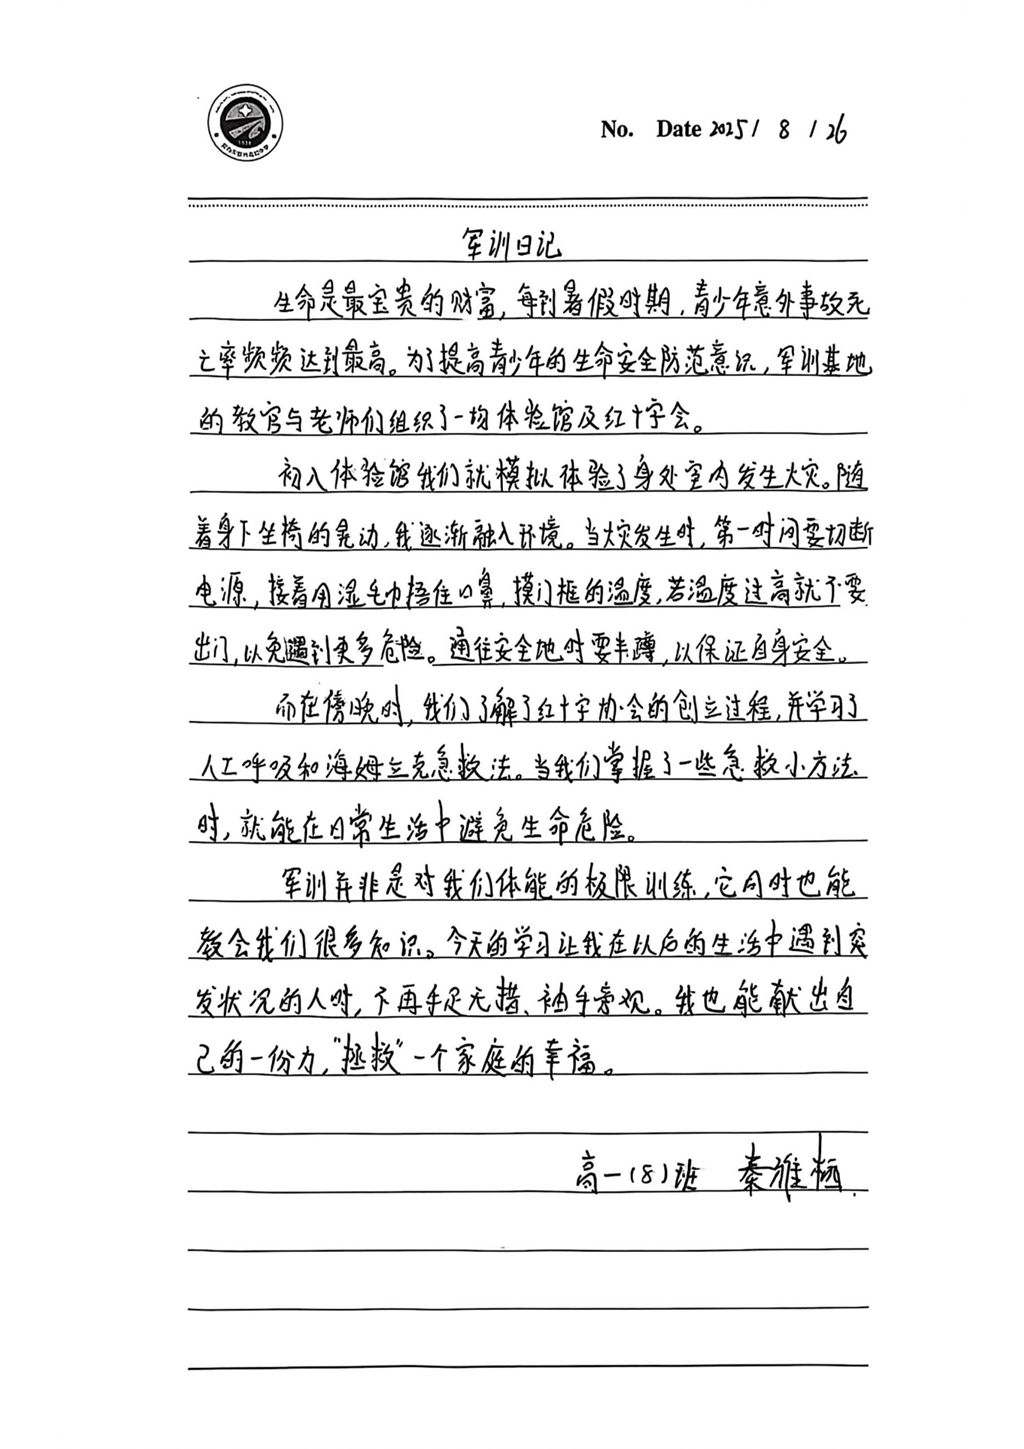 No. Date 2025/ 8 / 26
军训日记
生命是最宝贵的财富,每到暑假时期,青少年意外事故死
亡率频频达到最高。为了提高青少年的生命安全防范意识,军训基地
的教官与老师们组织了一场体验馆及红十字会。
初入体验馆我们就模拟体验了身处室内发生火灾。随
着身下坐椅的晃动,我逐渐融入环境。当火灾发生时,第一时间要切断
电源,接着用湿毛巾捂住口鼻,摸门框的温度,若温度过高就不要
出门,以免遇到更多危险。通往安全地时要半蹲,以保证自身安全。
而在傍晚时,我们了解了红十字协会的创立过程,并学习了
人工呼吸和海姆立克急救法。当我们掌握了一些急救小方法
时,就能在日常生活中避免生命危险。
军训并非是对我们体能的极限训练,它同时也能
教会我们很多知识。今天的学习让我在以后的生活中遇到突
发状况的人时,不再手足无措、袖手旁观。我也能献出自
己的一份力,"拯救"一个家庭的幸福。
高一(8)班 秦雅